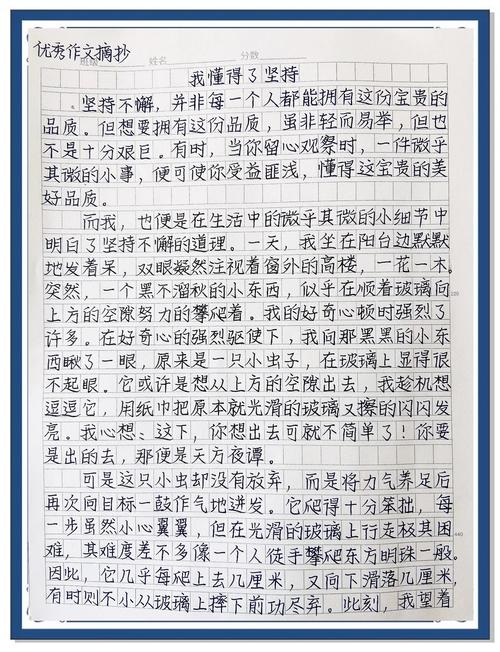 优秀作文摘抄
班级 姓名 分数
我懂得了坚持
坚持不懈，并非每一个人都能拥有这份宝贵的
品质。但想要拥有这份品质，虽非轻而易举，但也
不是十分艰巨。有时，当你留心观察时，一件微乎
其微的小事，便可使你受益匪浅，懂得这宝贵的美
好品质。
而我，也便是在生活中的微乎其微的小细节中
明白了坚持不懈的道理。一天，我坐在阳台边默默
地发着呆，双眼凝然注视着窗外的高楼，一花一木。
突然，一个黑不溜秋的小东西，似乎在顺着玻璃向
上方的空隙努力的攀爬着。我的好奇心顿时强烈了
许多。在好奇心的强烈驱使下，我向那黑黑的小东
西瞅了一眼，原来是一只小虫子，在玻璃上显得很
不起眼。它或许是想从上方的空隙出去，我趁机想
逗逗它，用纸巾把原本就光滑的玻璃又擦的闪闪发
亮。我心想：这下，你想出去可就不简单了！你要
是出的去，那便是天方夜谭。
可是这只小虫却没有放弃，而是将力气养足后
再次向目标一鼓作气地进发。它爬得十分笨拙，每
一步虽然小心翼翼，但在光滑的玻璃上行走极其困
难，其难度差不多像一个人徒手攀爬东方明珠一般。
因此，它几乎每爬上去几厘米，又向下滑落几厘米，
有时则不小从玻璃上摔下前功尽弃。此刻，我望着